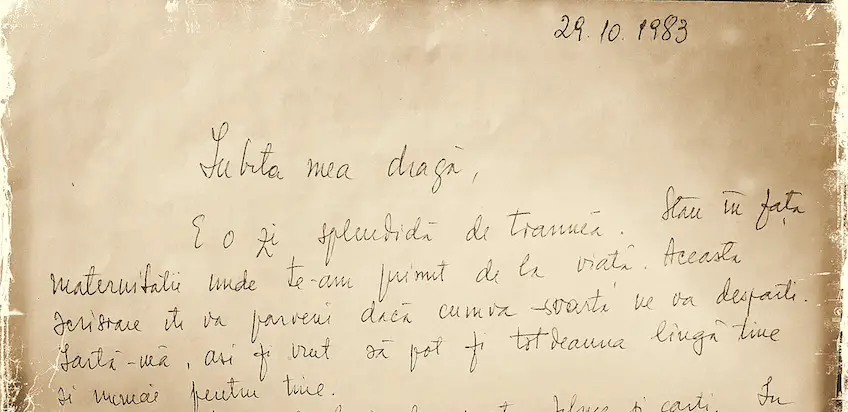 29.10.1983
Iubita mea dragă,
E o zi splendidă de toamnă. Stau în fața
maternității unde te-am primit de la viață. Această
scrisoare îți va parveni dacă cumva soarta ne va despărți.
Iartă-mă, aș fi vrut să pot fi totdeauna lîngă tine
și numai pentru tine.
și cărți. În